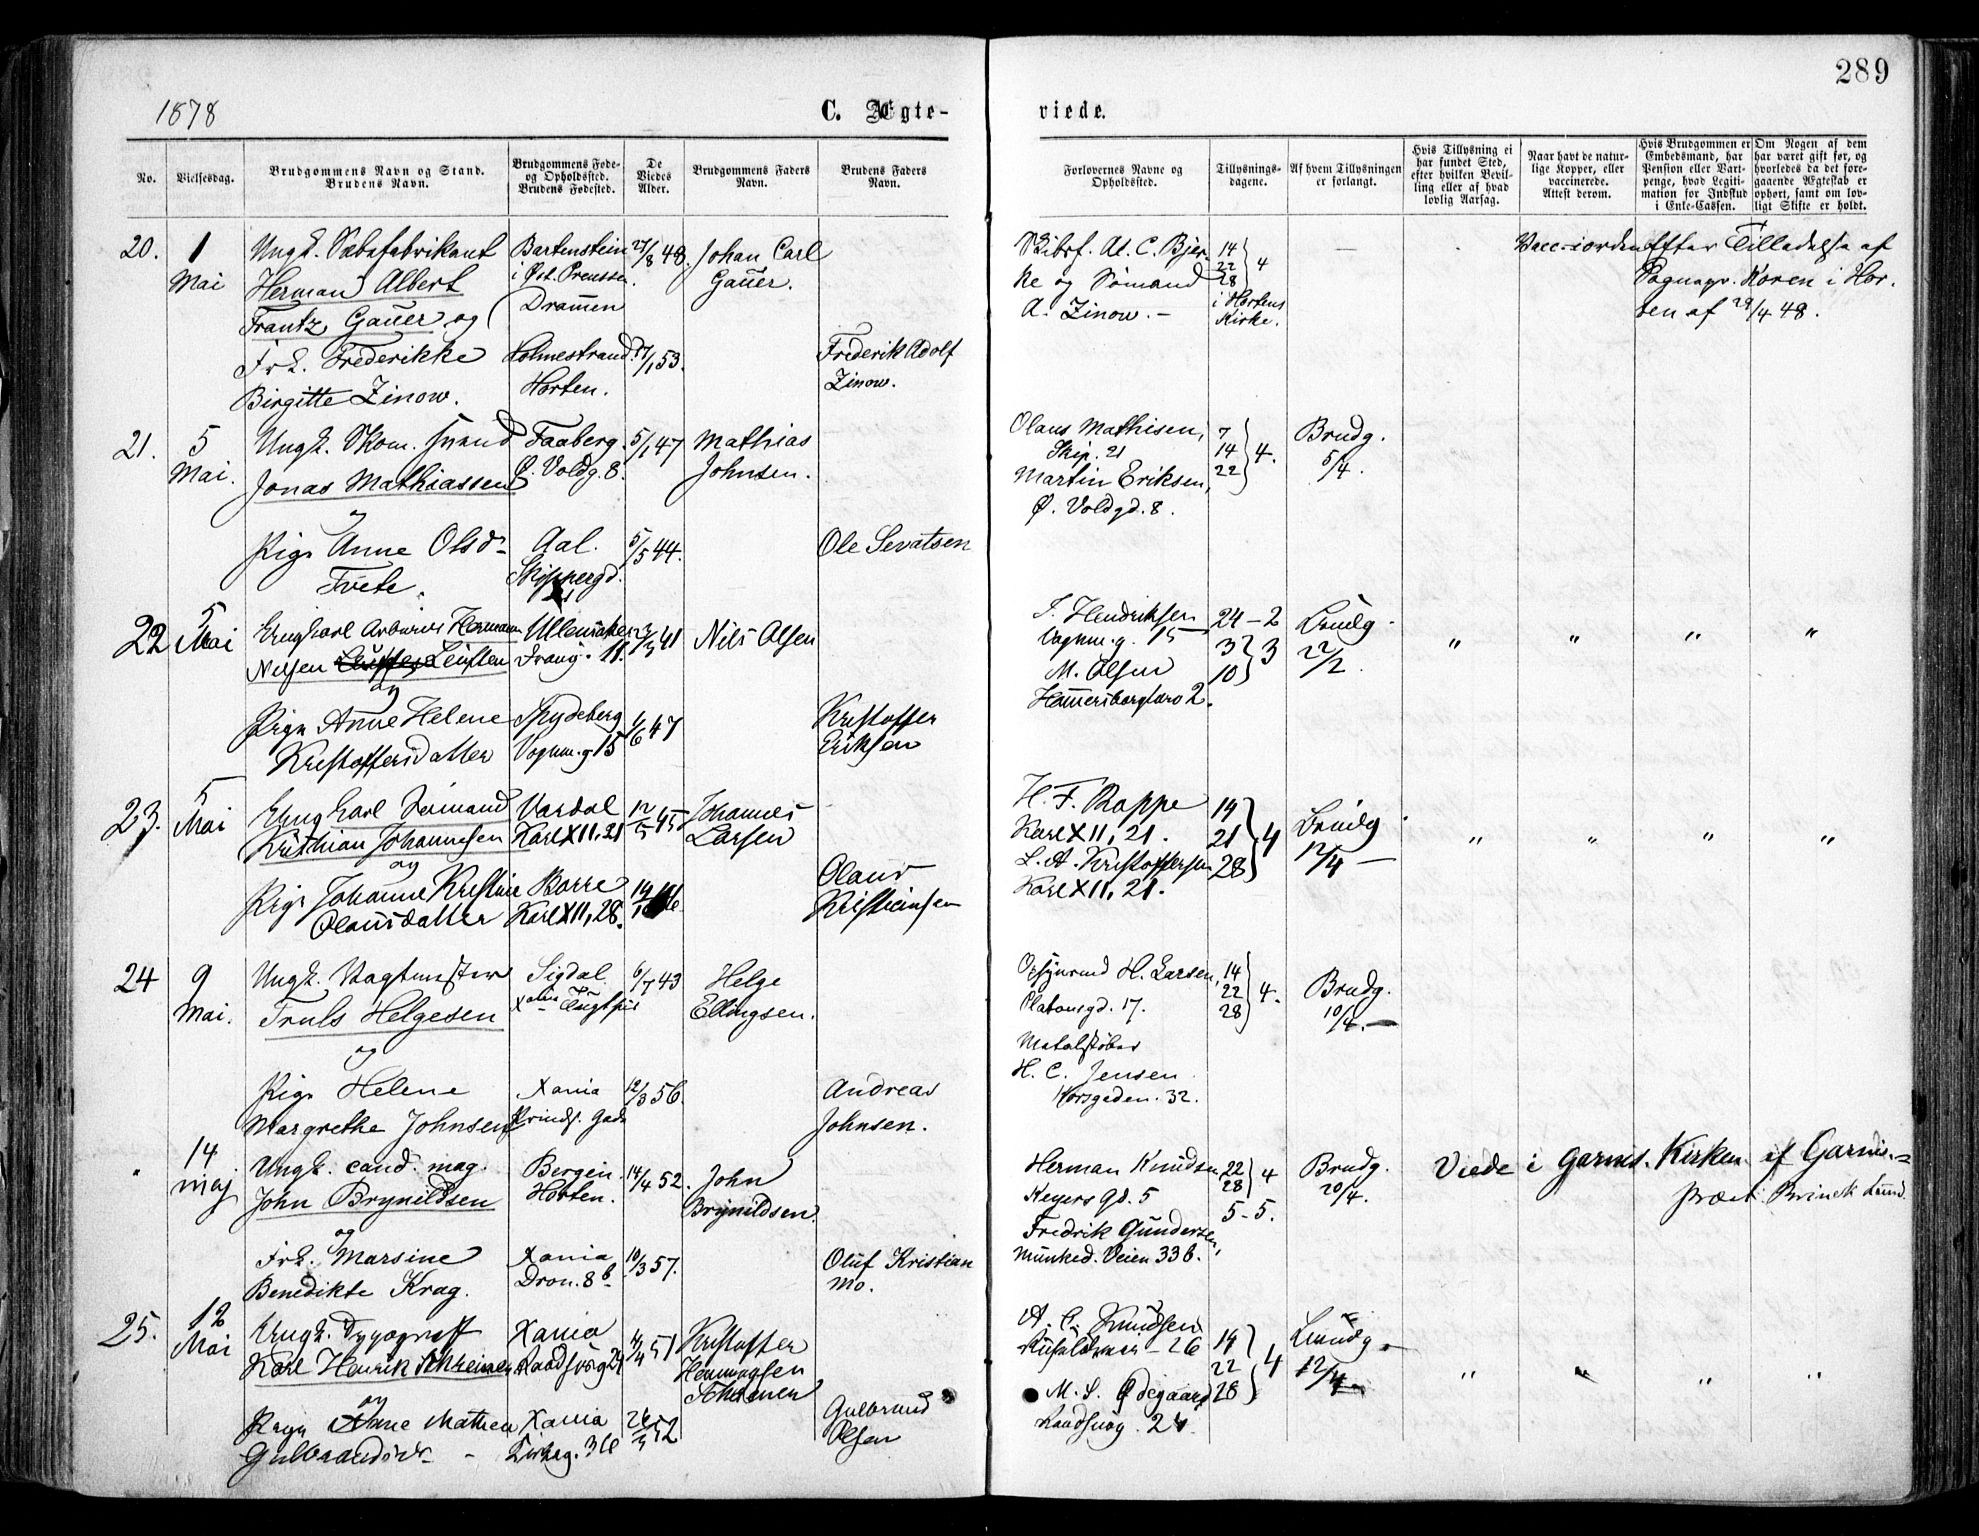 289
1878
C. Ægte-
viede.
No.
Vielsesdag.
Brudgommens Navn og Stand.
Brudens Navn.
Brudgommens Føde-
og Opholdssted.
Brudens Fødested.
De
Viedes
Alder.
Brudgommens Faders
Navn.
Brudens Faders
Navn.
Forlovernes Navne og
Opholdssted.
Tillysnings-
dagene.
Af hvem Tillysningen
er forlangt.
Hvis Tillysning ei
har fundet Sted,
efter hvilken Bevil-
ling eller af hvad
lovlig Aarsag.
Naar havt de natur-
lige Kopper, eller
vaccinerede.
Attest derom.
Hvis Brudgommen er
Embedsmand, har
Pension eller Vart-
penge, hvad Legiti-
mation for Indskud
i Enke-Cassen.
Om Nogen af dem
har været gift før, og
hvorledes da det fore-
gaaende Ægteskab er
ophørt, samt om lov-
ligt Skifte er holdt.
20.
1
Mai
Ungk. Sæbefabrikant
Herman Albert
Frantz Gaüer og
Frk. Frederikke
Birgitte Zinow.
Bartenstein
i Øst. Preussen.
Drammen
Holmestrand
Horten.
27/8 48.
27/1 53.
Johan Carl
Gaüer.
Frederik Adolf
Zinow.
Skibsf. At. C. Bjer-
ke og Sømand
A. Zinow. -
14
22
28
4
i Hortens
Kirke.
Vacc. i orden
Efter Tilladelse af
Sognepr. Koren i Hor-
ten af 29/4 48.
21.
5
Mai.
Ungk. Skom. svend
Jonas Mathiassen
og
Pige Anne Olsd.
Tvete.
Faaberg.
Ø. Voldg. 8.
Aal.
Skippergd.
5/1 47
5/5 44.
Mathias
Johnsen.
Ole Sevatsen
Olaus Mathisen,
Skip. 21
Martin Eriksen,
Ø. Voldgd. 8.
7
14
22
4.
Brudg.
5/4.
22
5
Mai
Ungkarl Herman
Nilsen Leusten
og
Pige Anne Helene
Kristoffersdatter
Ullensaker
11.
Spydeberg
Vognm.g 15
41
1/6 47
Nils Olsen
Kristoffer
Eriksen
J. Hendriksen
Vognm.g. 15
M. Olsen
Hammersborgtorv 2.
24-2
3
10
3
Brudg.
22/2.
23.
5
Mai
Ungkarl Sømand
Kristian Johannesen
og
Pige Johanne Kristine
Olausdatter
Vardal
Karl XII, 21
Borre
Karl XII, 28.
12/5 45
Johannes
Larsen
Olaus
Kristiansen
H. F. Rappe
Karl XII, 21.
L. A. Kristoffersen
Karl XII, 21.
14
21
28
4
Brudg.
12/4 -
24
9
Mai.
Ungk. Vagtmester
Truls Helgesen
og
Pige Helene
Margrethe Johnsen
Sigdal
Xania Tugthus
Xania
Prinds. Gade
6/7 43
12/3 56.
Helge
Ellingsen.
Andreas
Johnsen.
Opsynsmd H. Larsen,
Platousgd. 17.
Metalstøber
H. C. Jensen
Korsgaden. 32.
14
22
28
4.
Brudg.
10/4. -
14
Maj
Ungk. cand. mag.
John Brynildsen
og
Frk. Marsine
Benedikte Krag.
Bergen
Horten.
Xania
Dron. 8b
14/4 52.
10/3 57.
John
Brynildsen.
Oluf Kristian
Mo.
Herman Knudsen
Keysers Gd. 5
Fredrik Gundersen,
Munked. Veien 33 b.
22
28
4
5-5.
Brudg.
20/4.
Viede i Garnis. Kirken af Garnis.=
præst Brinck Lund.
25.
12
Mai
Ungk. Typograff
Karl Henrik Schreiner
og
Pige Anne Mathea
Gulbrandsdr.
Xania
Raadhusg 24
Xania
Kirkeg. 36
14/4 51
26/3 52
Kristoffer
Henningsen
Gulbrand
Olsen
A. C. Knudsen
- 26
M. L. Ødegaard
24
14
22
28
4
Brudg.
12/4 -